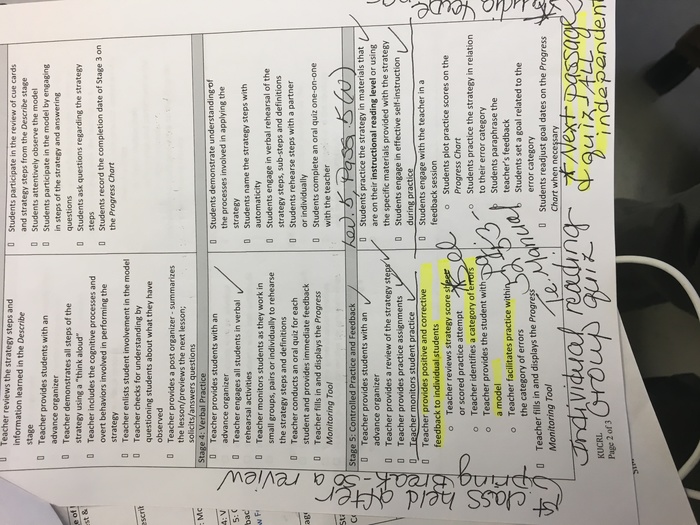 Teacher reviews the strategy steps and
information learned in the Describe
stage
Teacher provides students with an
advance organizer
Teacher demonstrates all steps of the
strategy using a "think aloud"
Teacher includes the cognitive processes and
overt behaviors involved in performing the
strategy
Teacher enlists student involvement in the model
Teacher checks for understanding by
questioning students about what they have
observed
Teacher provides a post organizer - summarizes
the lesson/previews the next lesson;
solicits/answers questions
Students participate in the review of cue cards
and strategy steps from the Describe stage
Students attentively observe the model
Students participate in the model by engaging
in steps of the strategy and answering
questions
Students ask questions regarding the strategy
steps
Students record the completion date of Stage 3 on
the Progress Chart
Stage 4: Verbal Practice
Teacher provides students with an
advance organizer
Teacher engages all students in verbal
rehearsal activities
Teacher monitors students as they work in
small groups, pairs or individually to rehearse
the strategy steps and definitions
Teacher conducts an oral quiz for each
student and provides immediate feedback
Teacher fills in and displays the Progress
Monitoring Tool
Students demonstrate understanding of
the processes involved in applying the
strategy
Students name the strategy steps with
automaticity
Students engage in verbal rehearsal of the
strategy steps, sub-steps and definitions
Students rehearse steps with a partner
or individually
Students complete an oral quiz one-on-one
with the teacher
Stage 5: Controlled Practice and Feedback
Lev. 5, Pass. 5
Teacher provides students with an
advance organizer
Teacher provides a review of the strategy steps
Teacher provides practice assignments
Teacher monitors student practice
Teacher provides positive and corrective
feedback to individual students
Teacher reviews strategy score sheet
or scored practice attempt
Teacher identifies a category of errors
Teacher provides the student with
a model
Teacher facilitates practice within
the category of errors
Teacher fills in and displays the Progress
Monitoring Tool
Students practice the strategy in materials that
are on their instructional reading level or using
the specific materials provided with the strategy
Students engage in effective self-instruction
during practice
Students engage with the teacher in a
feedback session
Students plot practice scores on the
Progress Chart
Students practice the strategy in relation
to their error category
Students paraphrase the
teacher's feedback
Students set a goal related to the
error category
Students readjust goal dates on the Progress
Chart when necessary
Manual
Individual reading
group quiz
* Next passage
& quiz ALL
independent
KUCRL
Page 2 of 3
1st class held after
spring break - so a review